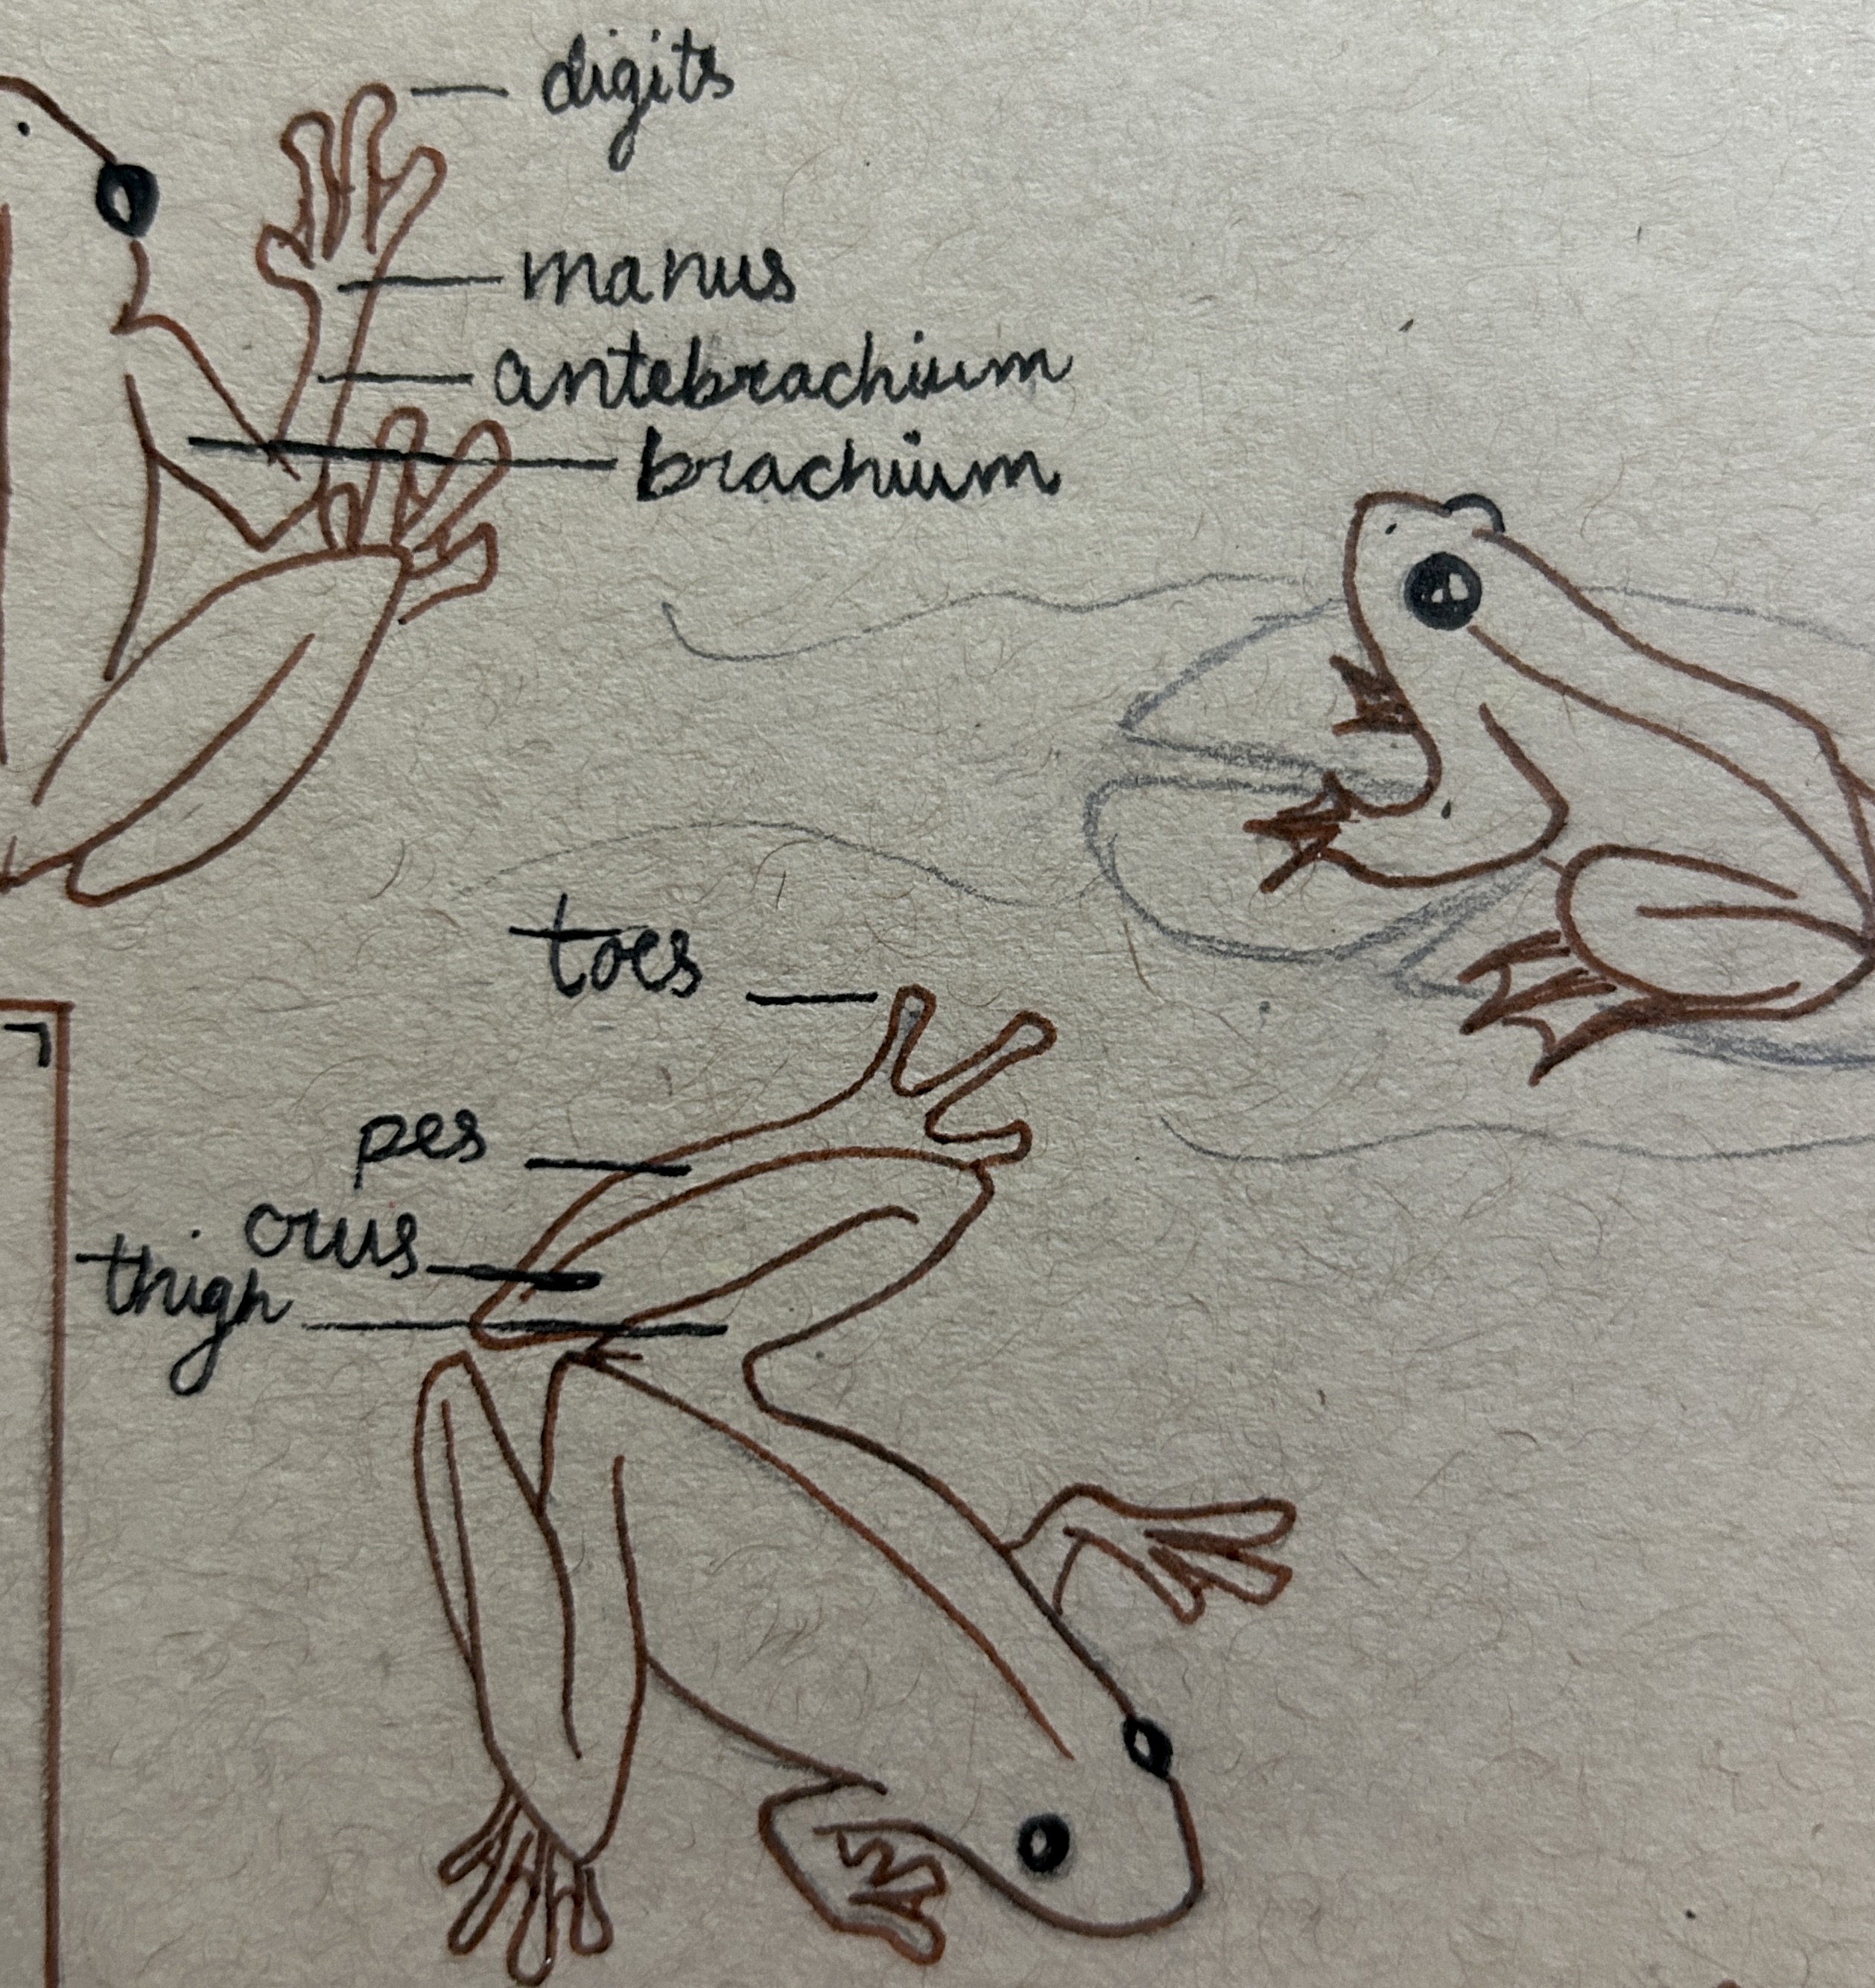 digits
manus
antebrachium
brachium
toes
pes
crus
thigh